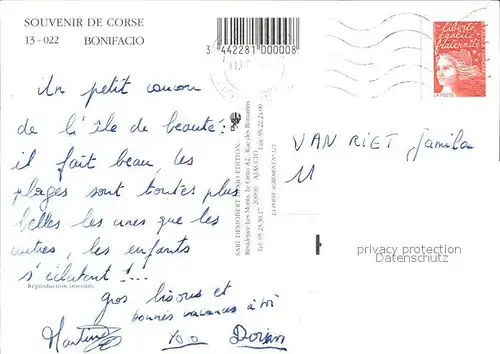 SOUVENIR DE CORSE
13 - 022 BONIFACIO
3 442281 000008
liberté
égalité
fraternité
LA POSTE
Un petit coucou
de l'île de beauté :
il fait beau, les
plages sont toutes plus
belles les unes que les
autres, les enfants
s'éclatent !...
Reproduction interdite
gros bisous et
bonnes vacances à toi
Martine Dorian
SARL DESJOBERT PHOTO EDITION
Résidence Les Monts, Le Cirno A2, Rue des Romarins
Tel. 95.23.30.17 20090 AJACCIO Fax: 95.22.24.09
LA POSTE AGREMENT N° 123
VAN RIET, Jamila
11
privacy protection
Datenschutz